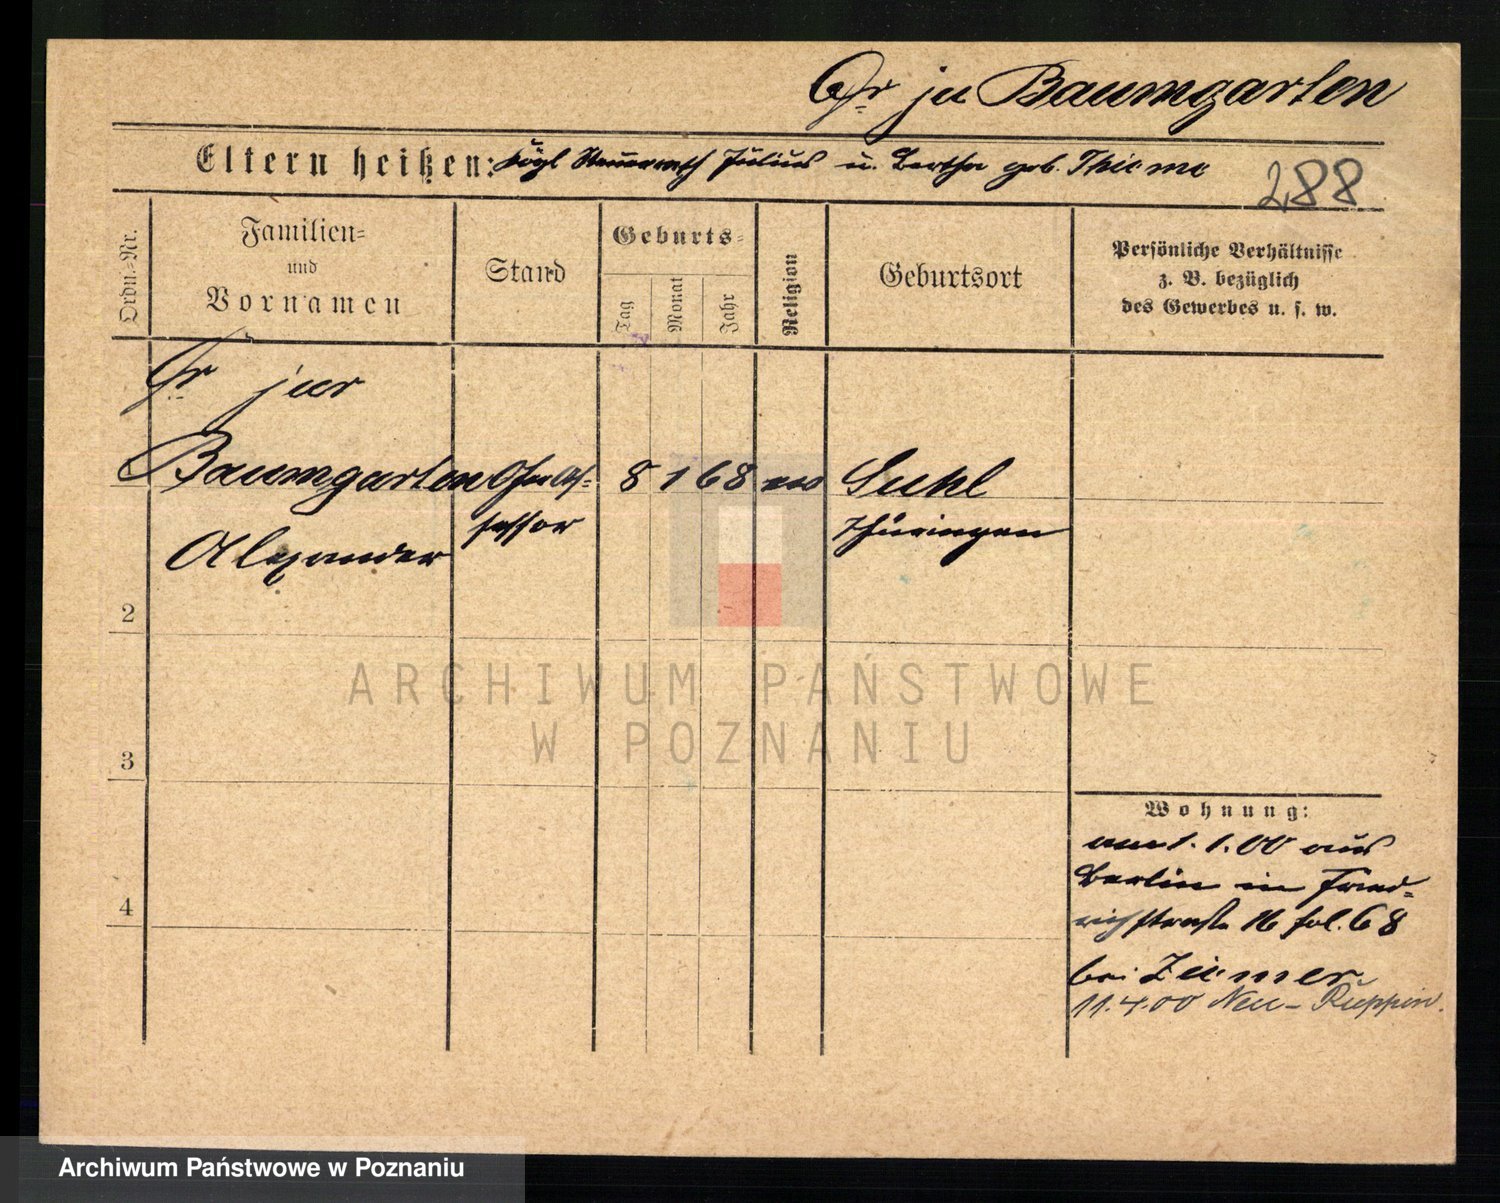 Dr ju Baumgarten
Eltern heißen: kögl Steuerrath Julius u. Bertha geb. Thieme
288
Ordn.-Nr.
Familien=
und
Vornamen
Stand
Geburts=
Tag
Monat
Jahr
Religion
Geburtsort
Persönliche Verhältnisse
z. B. bezüglich
des Gewerbes u. s. w.
Dr jur
1 Baumgarten 8 1 68 Suhl
Alexander sessor Thüringen
2
3
4
Wohnung:
1. 1. 00 aus
Berlin in Fried-
richstraße 16 fol. 68
bei Ziemer
11.4.00 Neu-Ruppin.
ARCHIWUM PAŃSTWOWE
W POZNANIU
Archiwum Państwowe w Poznaniu